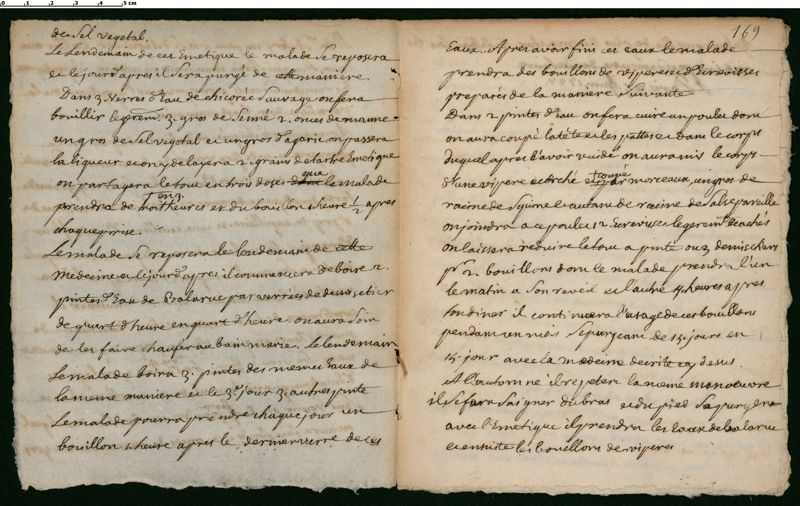 de Sel vegetal.
Le Lendemain de cet Emetique le malade se reposera
et le jour d'apres il sera purgé de cette maniere
Dans 3 verres d'Eau de chicorée Sauvage on fera
bouillir legerem.t 3. gros de Sené 2. onces de manne
un gros de Sel vegetal et un gros d'agaric on passera
la liqueur et on y delayera 2. grains de tartre Emetique
on partagera le tout en trois doses que le malade
prendra de trois heures et du bouillon 1 heure 1/2 apres
chaque prise.
Le malade se reposera le lendemain de cette
Medecine et le jour d'apres il commencera de boire 2.
pintes d'Eau de Balaruc par verrées de demi setier
de quart d'heure en quart d'heure. on aura soin
de les faire chaufer au bain marie. le lendemain
Le malade boira 3. pintes des memes Eaux de
la meme maniere et le 3.e jour 3. autres pinte
Le malade pourra prendre chaque jour un
bouillon 1 heure apres le dernier verre de ces
169
Eaux. Apres avoir fini ces eaux le malade
prendra des bouillons de viperes et d'Ecrevisses
preparés de la maniere suivante
Dans 2 pintes d'Eau on fera cuire un poulet dont
on aura coupé la tête et les pattes et dans le corps
duquel apres l'avoir vuidé on aura mis le corps
d'une vipere ecorché et coupé par morceaux, un gros de
racine de Squine et autant de racine de Salsepareille
on joindra a ce poulet 12 Ecrevisses legerem.t ecachés
on laissera reduire le tout a pinte ou 3 demi setiers
p.r 2. bouillons dont le malade prendra l'un
le matin a son reveil et l'autre 4 heures apres
son diner il continuera l'usage de ces bouillons
pendant un mois se purgeant de 15 jours en
15 jour avec la medecine decrite cy desus.
A l'automne il repetera la meme manoeuvre
il se fera Saigner du bras et du pied se purgera
avec l'Emetique il prendra les Eaux de balaruc
et ensuite les bouillons de viperes